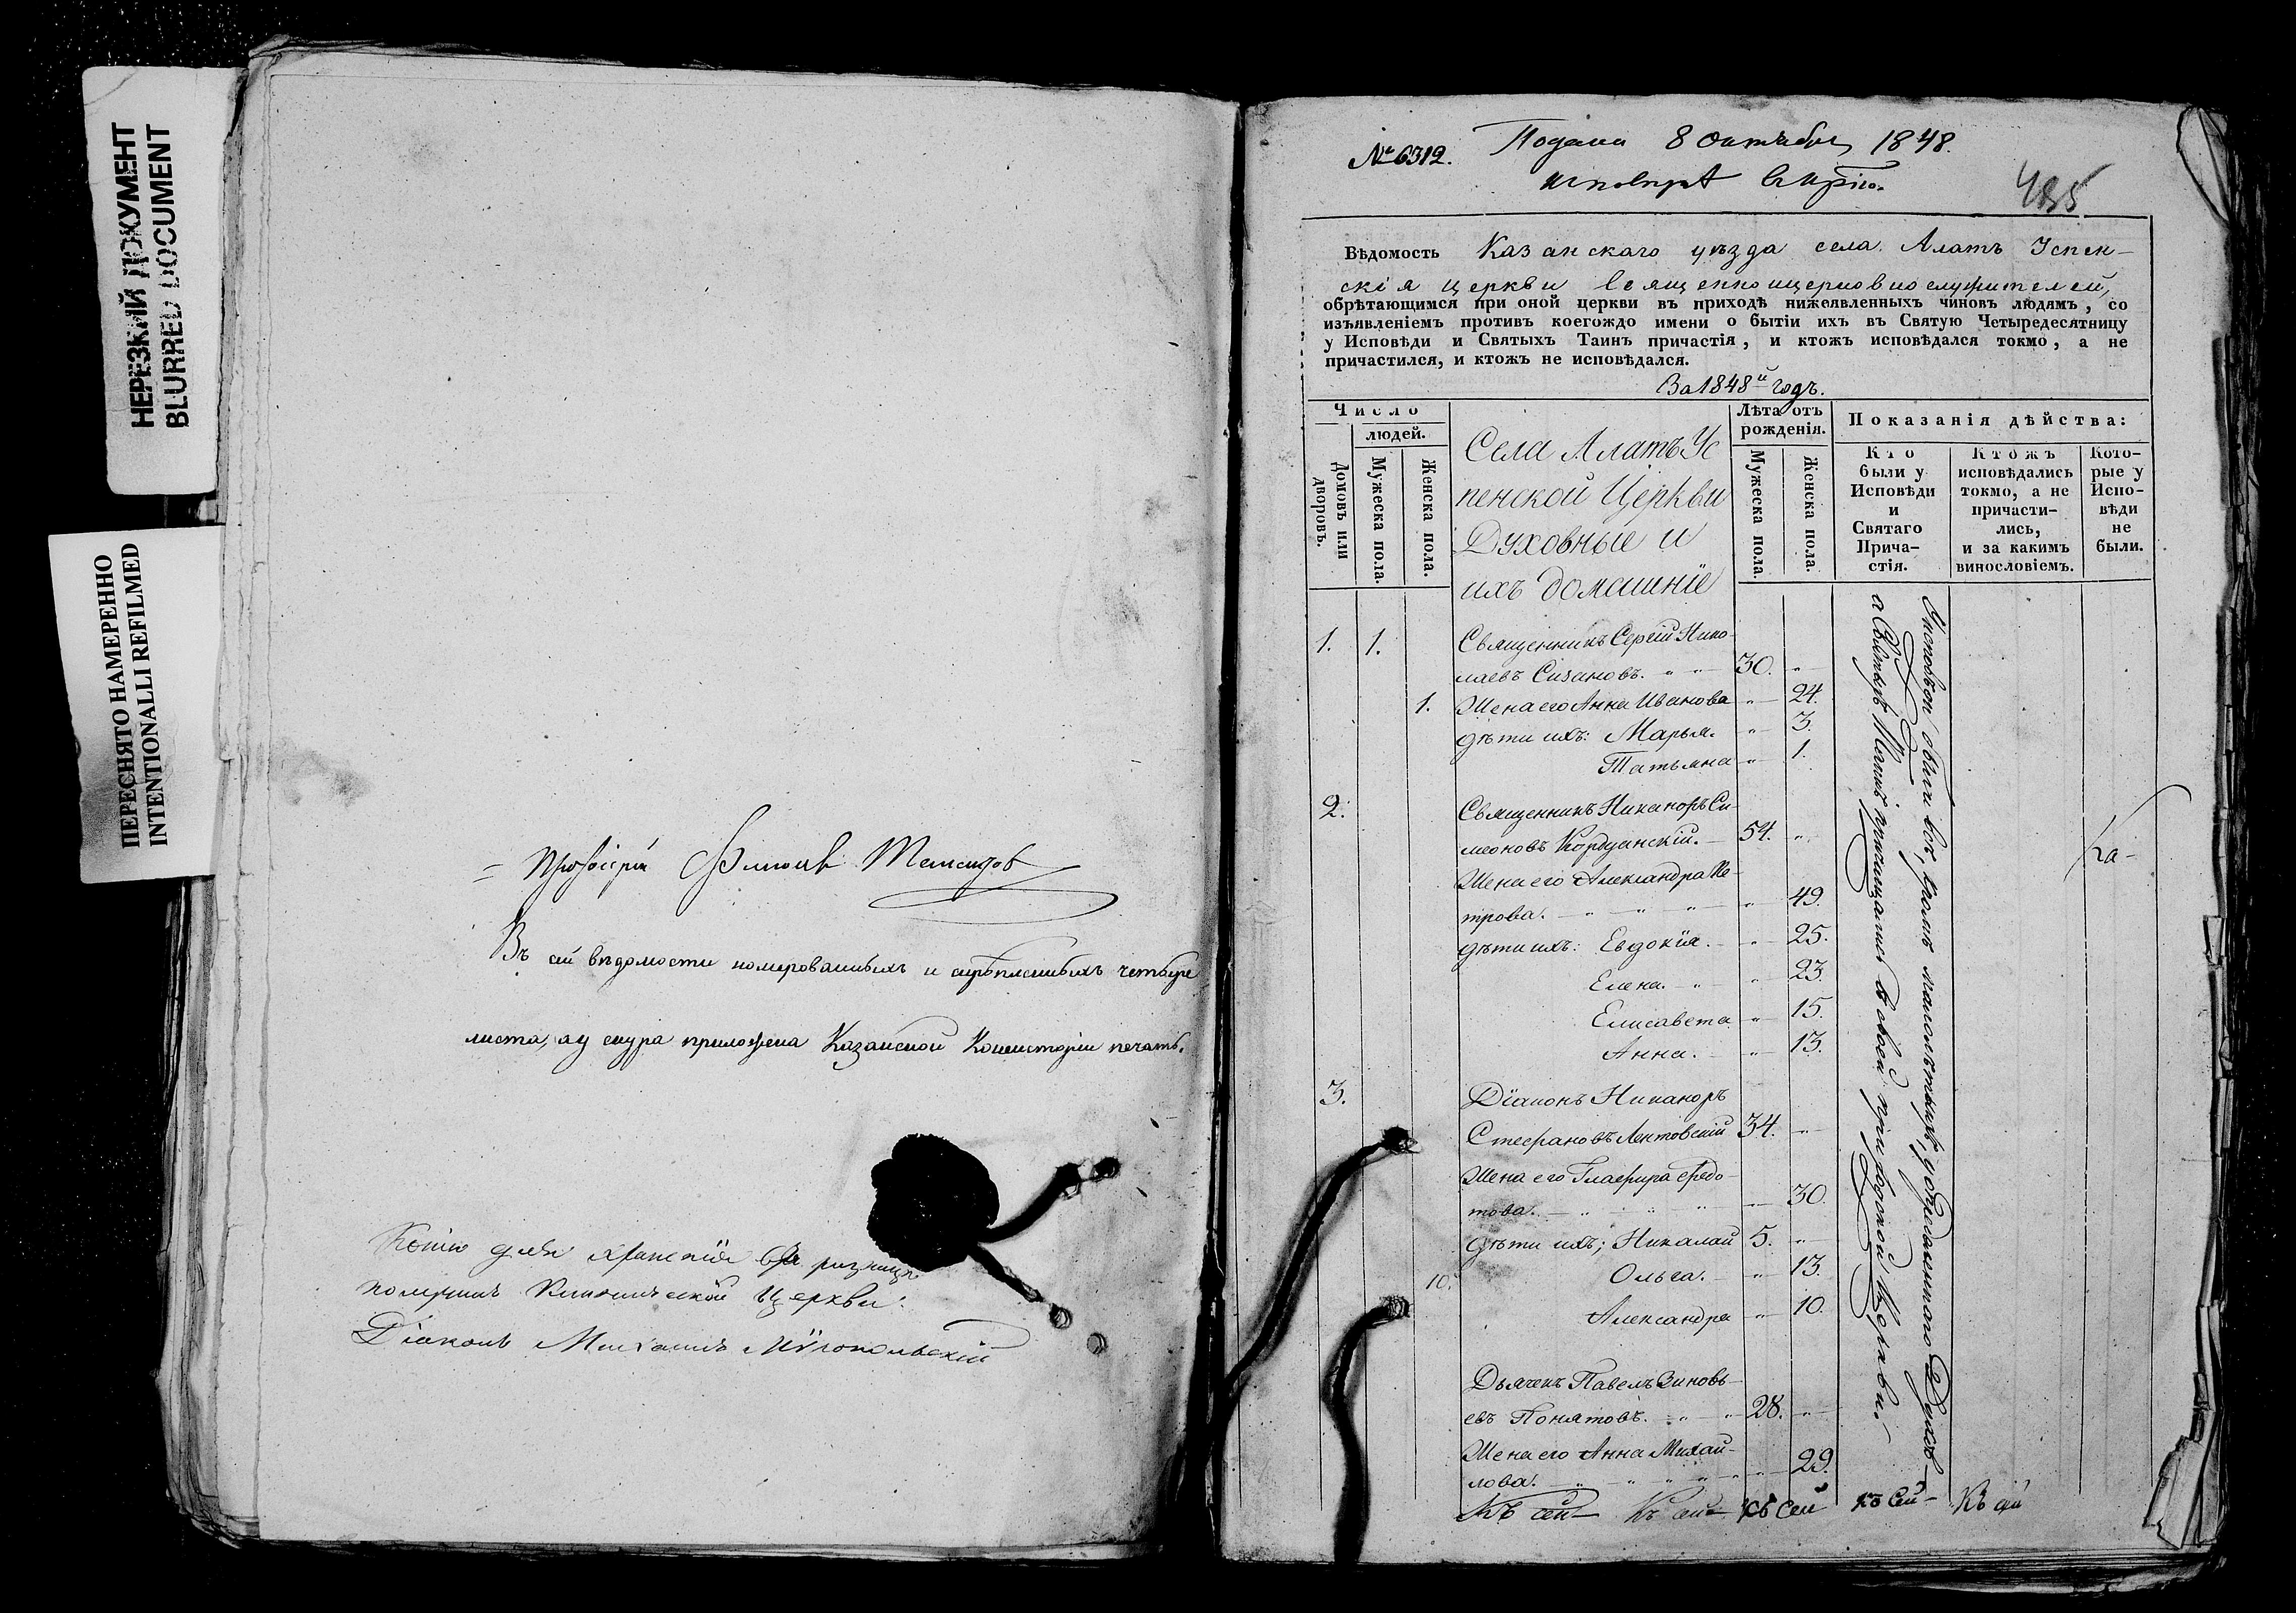 НЕРЕЗКИЙ ДОКУМЕНТ
BLURRED DOCUMENT
ПЕРЕСНЯТО НАМЕРЕННО
INTENTIONALLI REFILMED
Въ сей вѣдомости номерованныхъ и скрѣпленныхъ четыре
листа, а у снура приложена Казанской Консисторіи печать.
Копію для храненія въ ризницѣ
получилъ Церкви
Діаконъ Михаилъ
№ 6312. Подана 8 октября 1848.
435
Вѣдомость Казанскаго уѣзда села Алатъ Успен-
скія церкви священноицерковнослужителей,
обрѣтающимся при оной церкви въ приходѣ нижеявленныхъ чиновъ людямъ, со
изъявленіемъ противъ коегождо имени о бытіи ихъ въ Святую Четыредесятницу
у Исповѣди и Святыхъ Таинъ причастія, и ктожъ исповѣдался токмо, а не
причастился, и ктожъ не исповѣдался.
За 1848й годъ.
Число
людей.
Домовъ или дворовъ.
Мужеска пола.
Женска пола.
Села Алатъ Ус
пенской Церкви
Духовные и
ихъ домашніе
Лѣта отъ
рожденія.
Мужеска пола.
Женска пола.
Показанія дѣйства:
Кто
были у
Исповѣди
и
Святаго
Прича-
стія.
Ктожъ
исповѣдались
токмо, а не
причасти-
лись,
и за какимъ
винословіемъ.
Кото-
рые у
Испо-
вѣди
не
были.
1. 1. Священникъ Сергій Нико-
лаевъ Сизановъ. 30.
1. Жена его Анна Иванова 24.
дѣти ихъ: Марья. 3.
Татьяна 1.
2. Священникъ Никаноръ Си-
меоновъ Кордуанскій. 54.
Жена его Александра Пе-
трова. 49.
дѣти ихъ: Евдокія. 25.
Елена. 23.
Елисавета 15.
Анна. 13.
3. Діаконъ Никаноръ
Стефановъ Лентовскій 34.
Жена его Глафира Ѳедо-
това. 30.
дѣти ихъ; Николай 5.
10. Ольга. 13.
Александра 10.
Дьячекъ Павелъ Зиновь-
евъ Понятовъ. 28.
Жена его Анна Михай-
лова. 29.
У исповѣди были всѣ, кромѣ малолѣтныхъ, у Духов-
а Святыхъ Таинъ причащались въ своей приходской Церкви.
Ка-
Къ сей Къ сей Къ сей Къ сей Къ сей